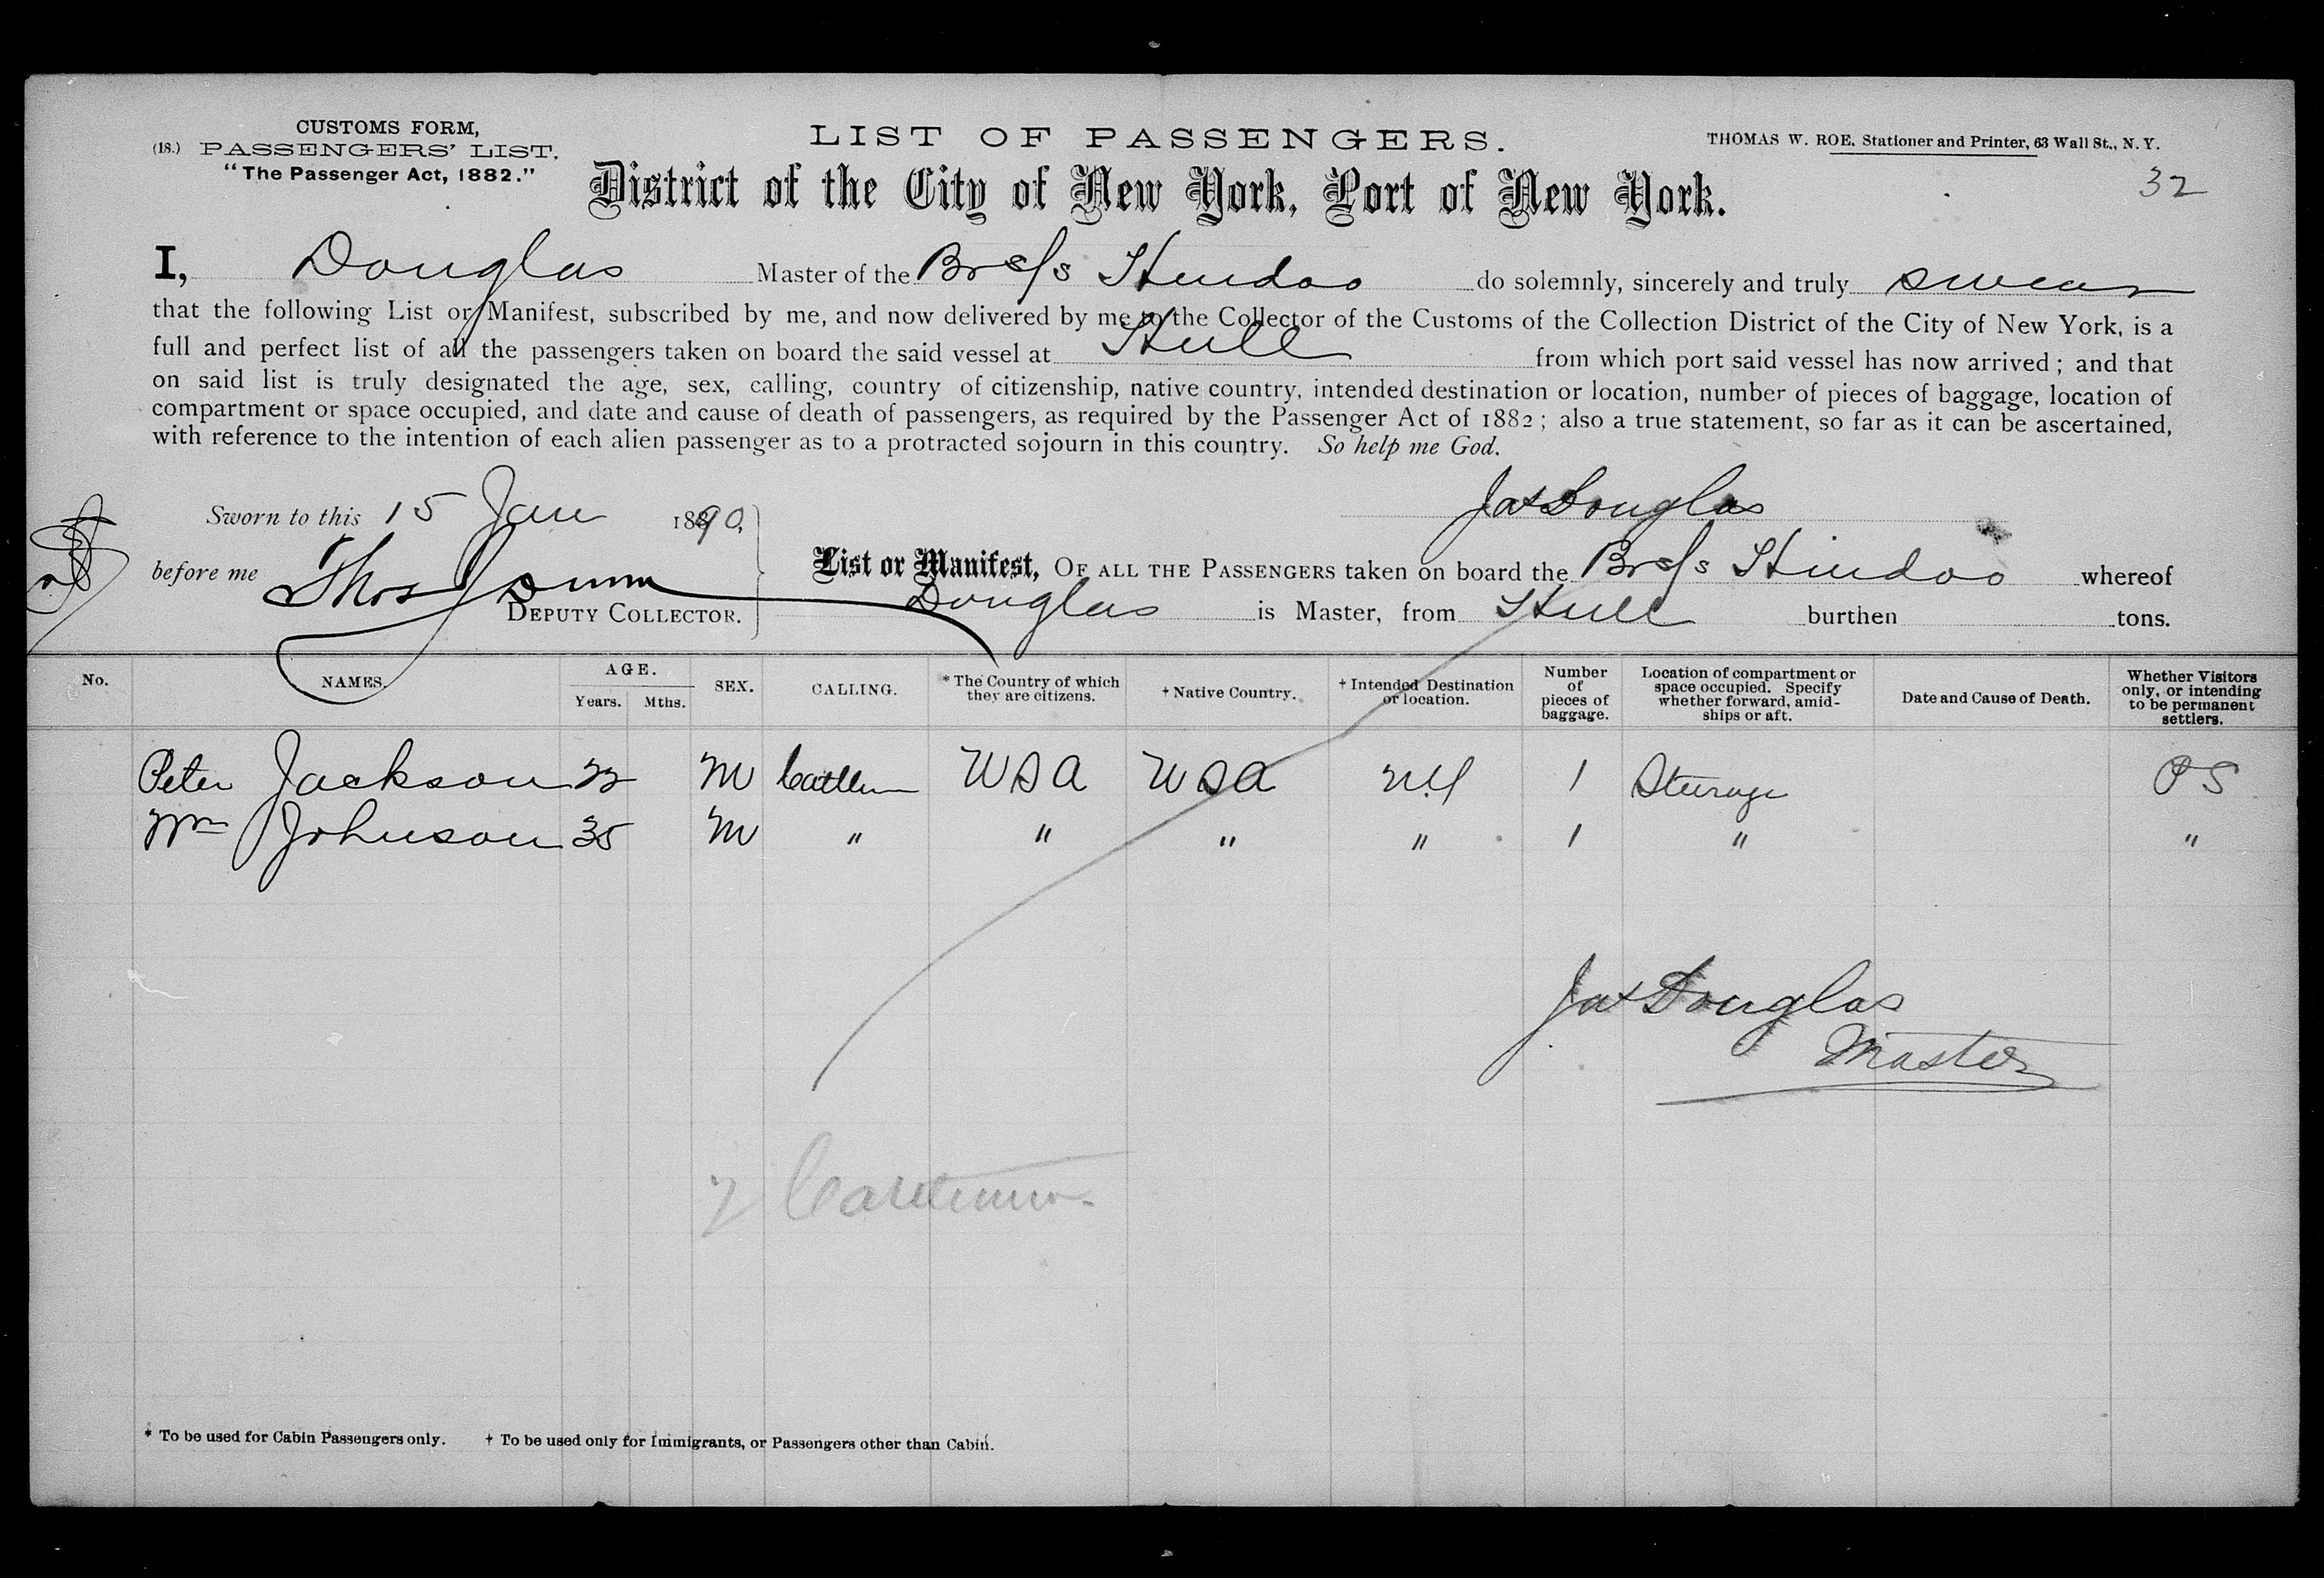 CUSTOMS FORM,
(18.) PASSENGERS' LIST.
"The Passenger Act, 1882."
LIST OF PASSENGERS.
THOMAS W. ROE, Stationer and Printer, 63 Wall St., N. Y.
District of the City of New York, Port of New York.
32
I, Douglas Master of the Br s/s Hindoo do solemnly, sincerely and truly swear
that the following List or Manifest, subscribed by me, and now delivered by me to the Collector of the Customs of the Collection District of the City of New York, is a
full and perfect list of all the passengers taken on board the said vessel at Hull from which port said vessel has now arrived; and that
on said list is truly designated the age, sex, calling, country of citizenship, native country, intended destination or location, number of pieces of baggage, location of
compartment or space occupied, and date and cause of death of passengers, as required by the Passenger Act of 1882; also a true statement, so far as it can be ascertained,
with reference to the intention of each alien passenger as to a protracted sojourn in this country. So help me God.
Jas Douglas
Sworn to this 15 Jan 1890,
before me Thos Dunn
DEPUTY COLLECTOR.
List or Manifest, OF ALL THE PASSENGERS taken on board the Br s/s Hindoo whereof
Douglas is Master, from Hull burthen tons.
No. NAMES. AGE. Years. Mths. SEX. CALLING. * The Country of which they are citizens. † Native Country. † Intended Destination or location. Number of pieces of baggage. Location of compartment or space occupied. Specify whether forward, amidships or aft. Date and Cause of Death. Whether Visitors only, or intending to be permanent settlers.
Peter Jackson 22 M USA USA NY 1 Steerage PS
Wm Johnson 35 M " " " " 1 " "
Jas Douglas
Master
* To be used for Cabin Passengers only. † To be used only for Immigrants, or Passengers other than Cabin.